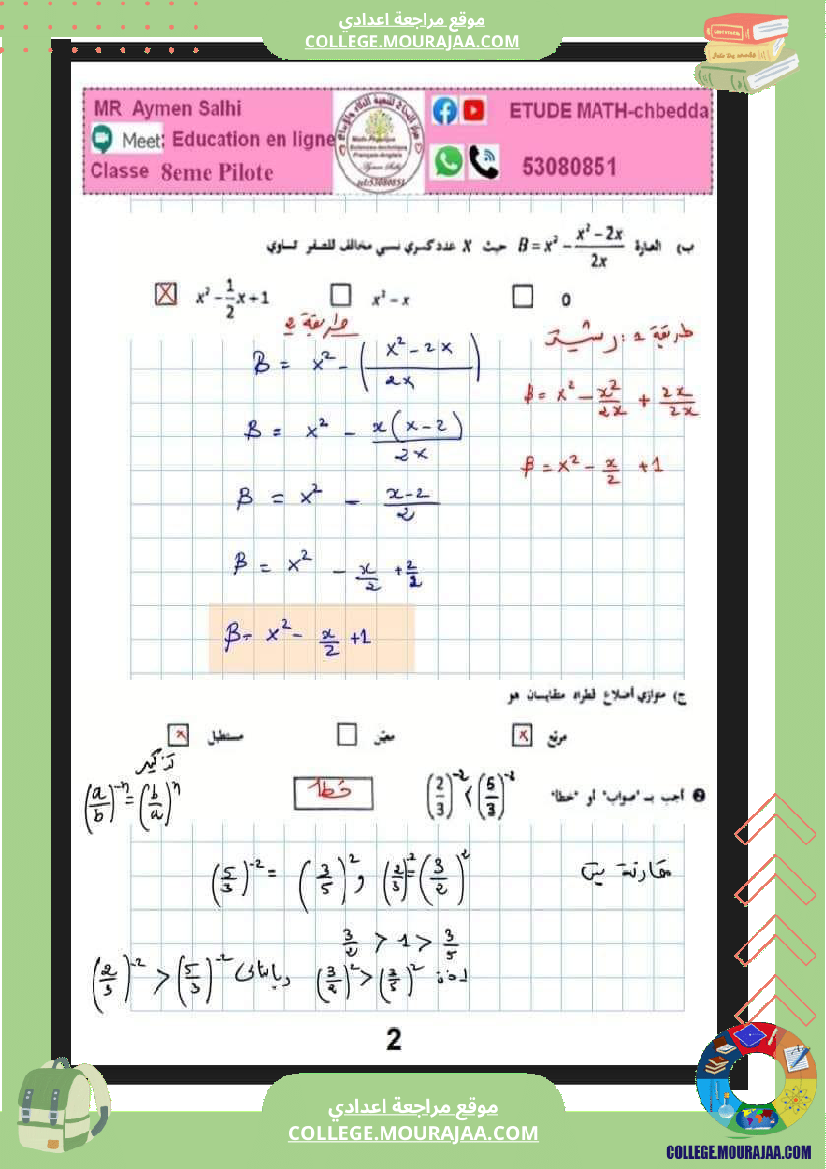 موقع مراجعة اعدادي
COLLEGE.MOURAJAA.COM
MR Aymen Salhi
Meet: Education en ligne
Classe 8eme Pilote
ETUDE MATH-chbedda
53080851
ب) العبارة B = x² - (x² - 2x)/2x حيث X عدد كسري نسبي مخالف للصفر تساوي
☒ x² - 1/2 x + 1 ☐ x² - x ☐ 0
طريقة 1:
B = x² - x²/2x + 2x/2x
B = x² - x/2 + 1
طريقة 2
B = x² - ((x² - 2x)/2x)
B = x² - x(x - 2)/2x
B = x² - (x - 2)/2
B = x² - x/2 + 2/2
B = x² - x/2 + 1
ج) متوازي أضلاع قطراه متقايسان هو
☒ مربع ☐ معيّن ☒ مستطيل
❷ أجب بـ "صواب" أو "خطأ"
(2/3)⁻² < (5/3)⁻² خطأ
تذكير
(a/b)⁻ⁿ = (b/a)ⁿ
مقارنة بين
(2/3)⁻² = (3/2)² و (5/3)⁻² = (3/5)²
3/2 > 1 > 3/5
إذن (3/2)² > (3/5)² وبالتالي (2/3)⁻² > (5/3)⁻²
2
موقع مراجعة اعدادي
COLLEGE.MOURAJAA.COM
COLLEGE.MOURAJAA.COM